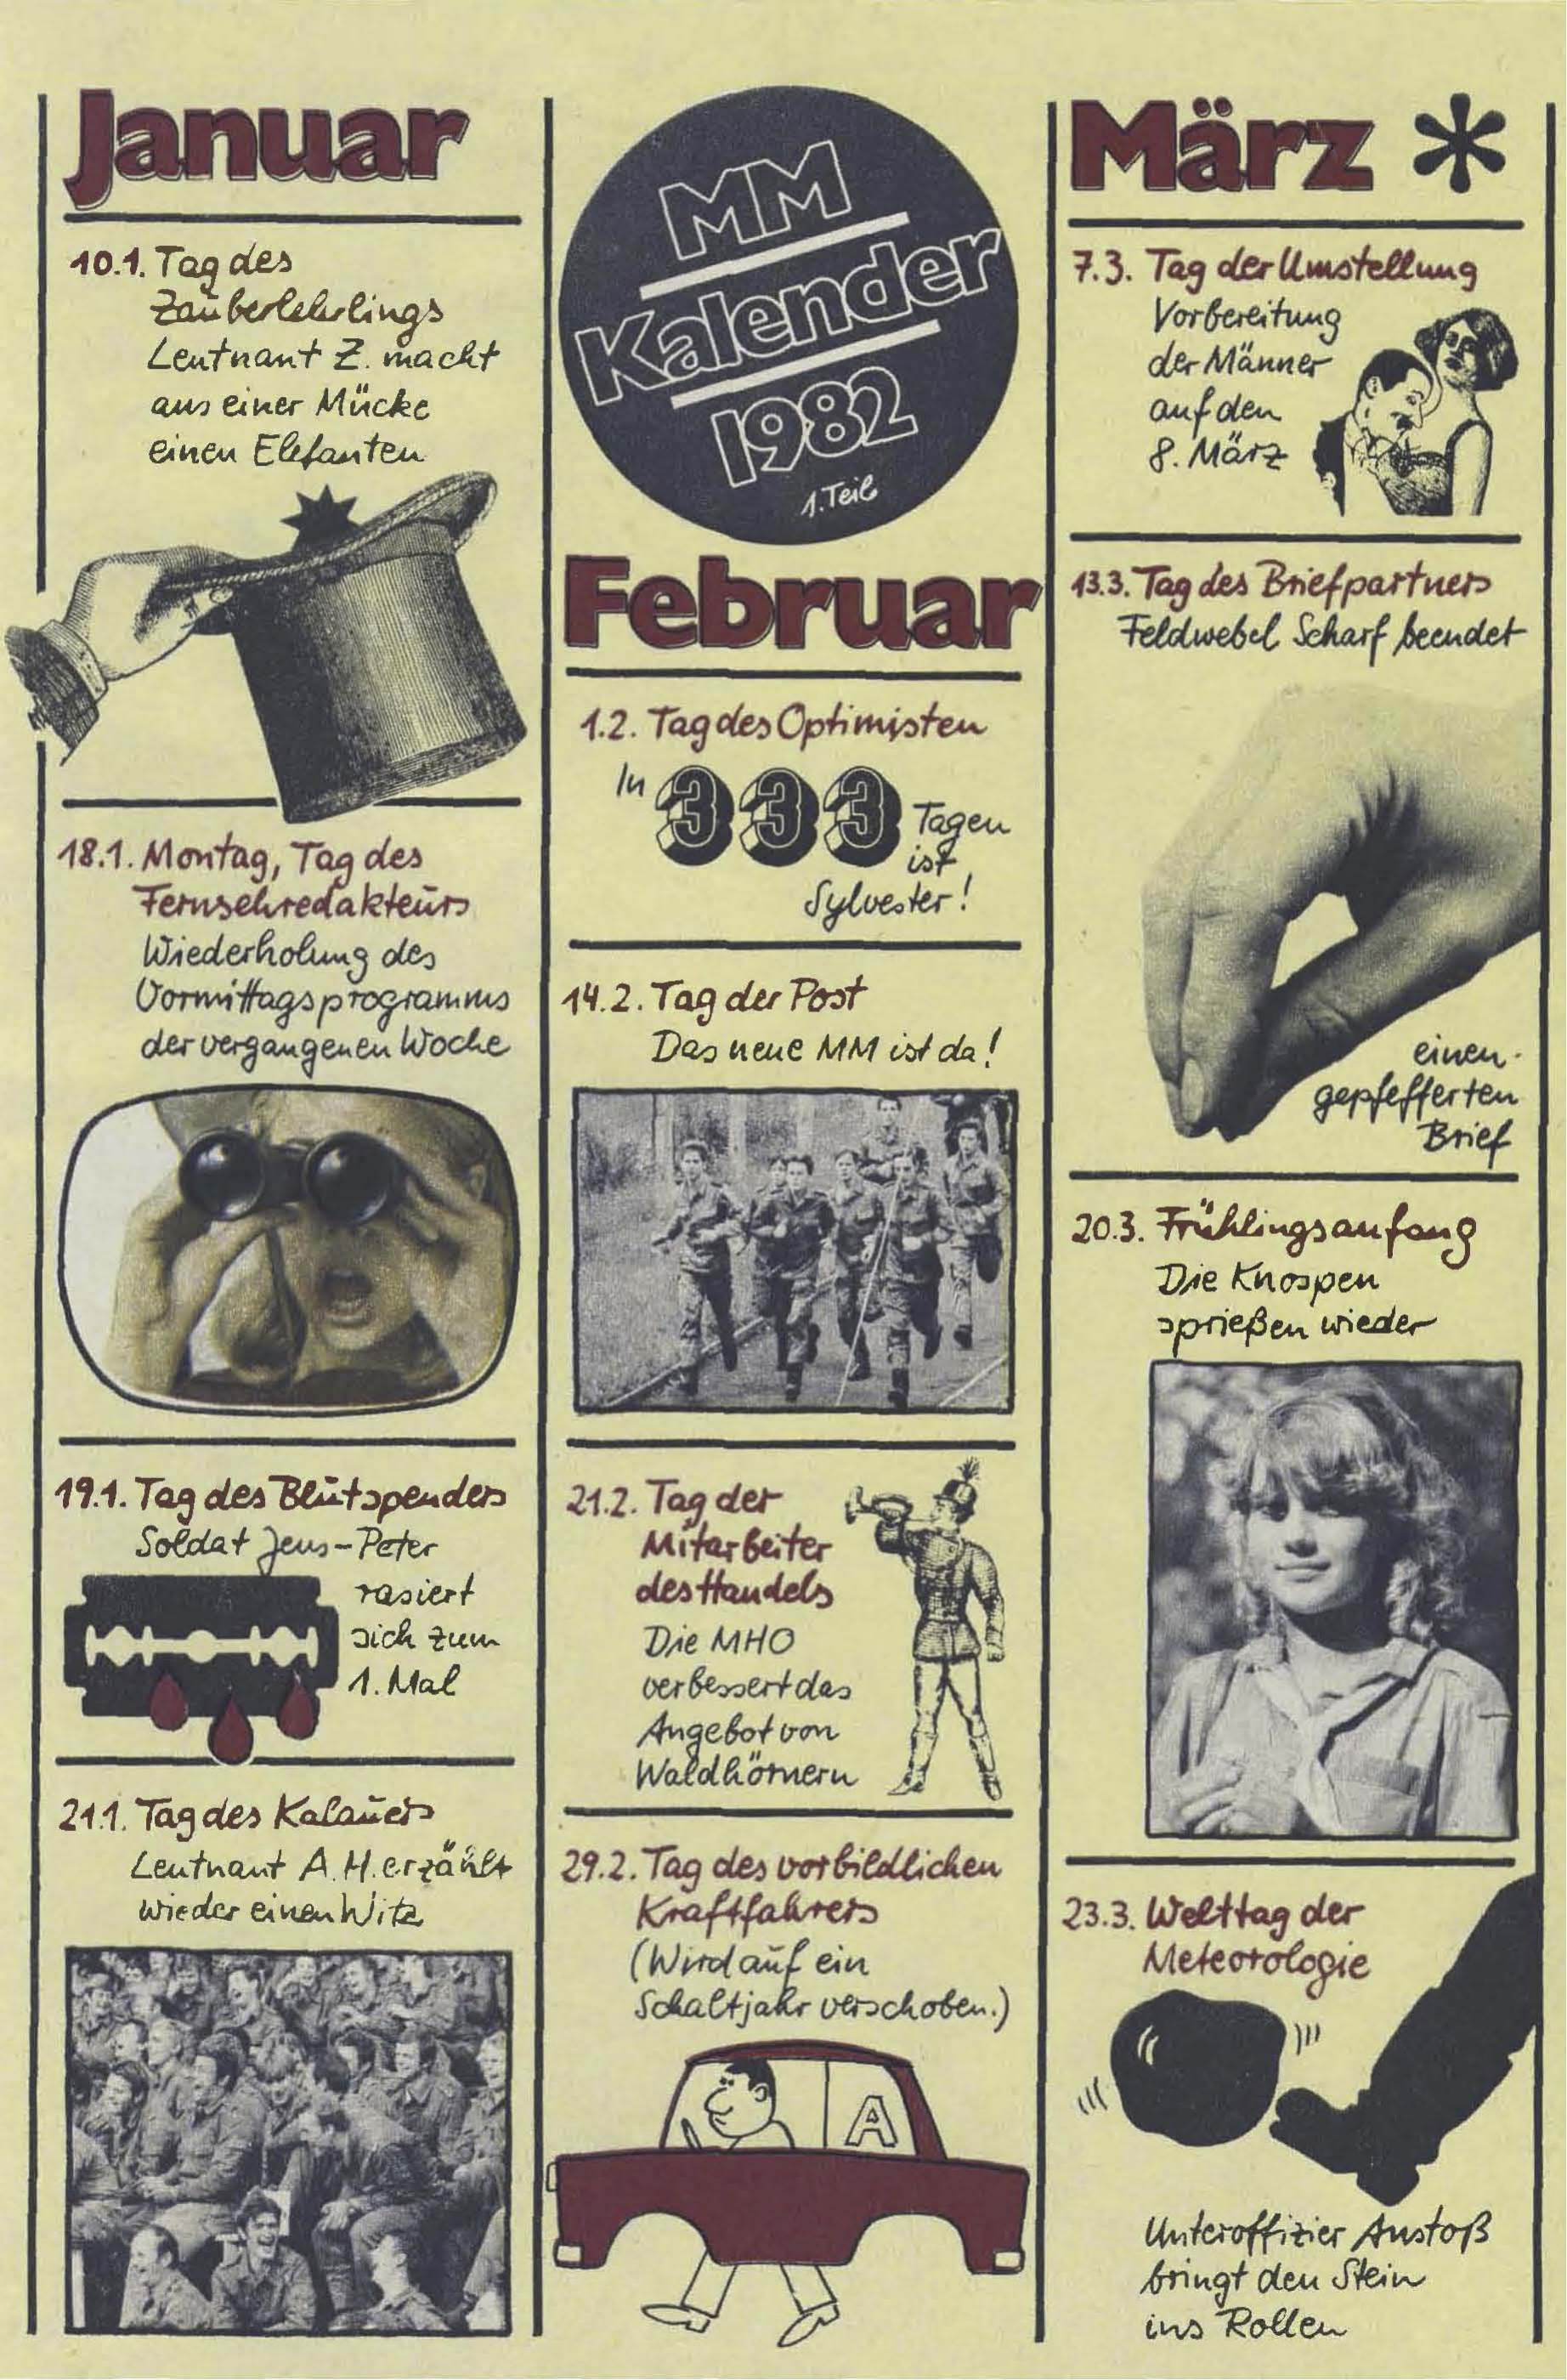 Januar
10.1. Tag des
Zauberlehrlings
Leutnant Z. macht
aus einer Mücke
einen Elefanten
18.1. Montag, Tag des
Fernsehredakteurs
Wiederholung des
Vormittagsprogramms
der vergangenen Woche
19.1. Tag des Blutspenders
Soldat Jens-Peter
rasiert
sich zum
1. Mal
21.1. Tag des Kalauers
Leutnant A. H. erzählt
wieder einen Witz
MM
Kalender
1982
1. Teil
Februar
1.2. Tag des Optimisten
In 333 Tagen
ist
Sylvester!
14.2. Tag der Post
Das neue MM ist da!
21.2. Tag der
Mitarbeiter
des Handels
Die MHO
verbessert das
Angebot von
Waldhörnern
29.2. Tag des vorbildlichen
Kraftfahrers
(Wird auf ein
Schaltjahr verschoben.)
A
März *
7.3. Tag der Umstellung
Vorbereitung
der Männer
auf den
8. März
13.3. Tag des Briefpartners
Feldwebel Scharf beendet
einen
gepfefferten
Brief
20.3. Frühlingsanfang
Die Knospen
sprießen wieder
23.3. Welttag der
Meteorologie
Unteroffizier Anstoß
bringt den Stein
ins Rollen